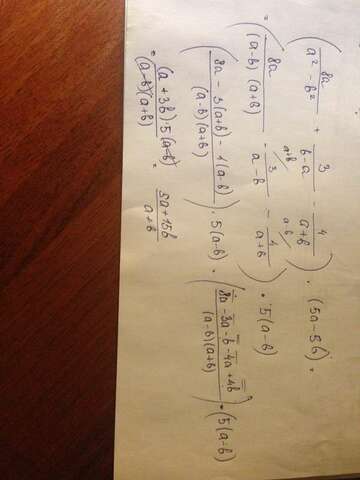 ( 8a / (a² - b²) + 3 / (b-a) - 4 / (a+b) ) · (5a-5b) =
a+b a-b
= ( 8a / ((a-b)(a+b)) - 3 / (a-b) - 4 / (a+b) ) · 5(a-b)
( (8a - 3(a+b) - 4(a-b)) / ((a-b)(a+b)) ) · 5(a-b) = ( (8a - 3a - b - 4a + 4b) / ((a-b)(a+b)) ) · (5(a-b)
= ((a+3b)·5(a-b)) / ((a-b)(a+b)) = (5a+15b) / (a+b)